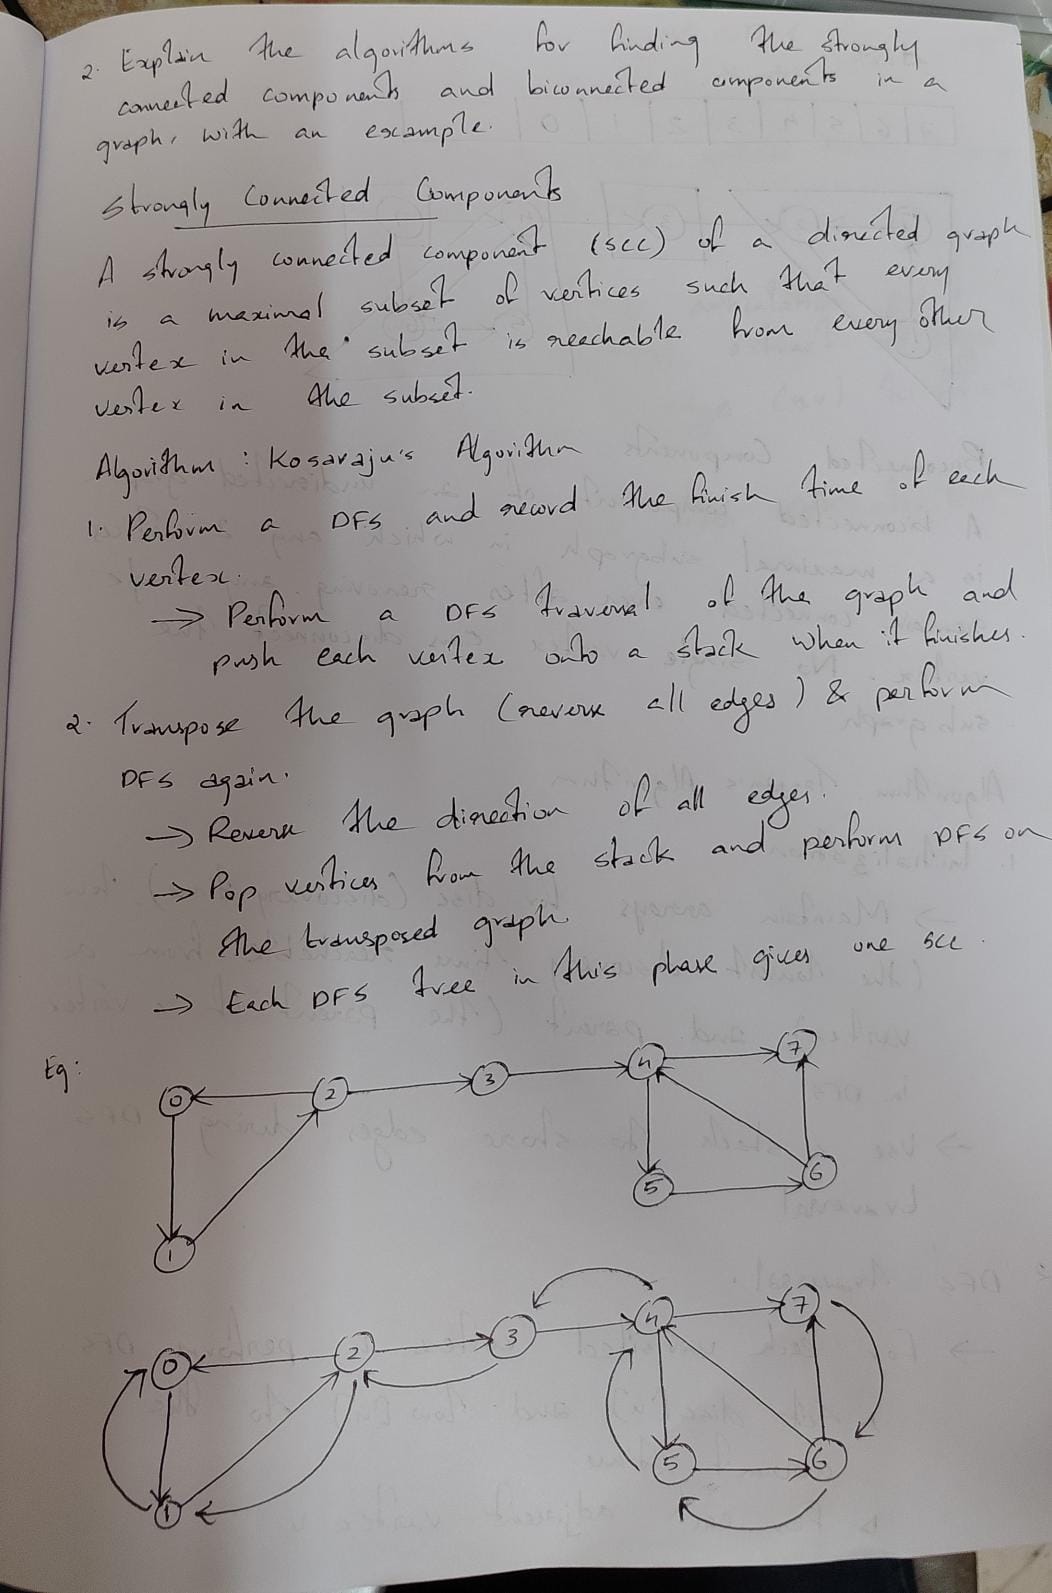 2. Explain the algorithms for finding the strongly
connected components and biconnected components in a
graph, with an example.
Strongly Connected Components
A strongly connected component (SCC) of a directed graph
is a maximal subset of vertices such that every
vertex in the subset is reachable from every other
vertex in the subset.
Algorithm : Kosaraju's Algorithm
1. Perform a DFS and record the finish time of each
vertex.
→ Perform a DFS traversal of the graph and
push each vertex onto a stack when it finishes.
2. Transpose the graph (reverse all edges) & perform
DFS again.
→ Reverse the direction of all edges.
→ Pop vertices from the stack and perform DFS on
the transposed graph.
→ Each DFS tree in this phase gives one scc.
Eg:
0 2 3 4 7
5 6
1
0 2 3 4 7
5 6
1